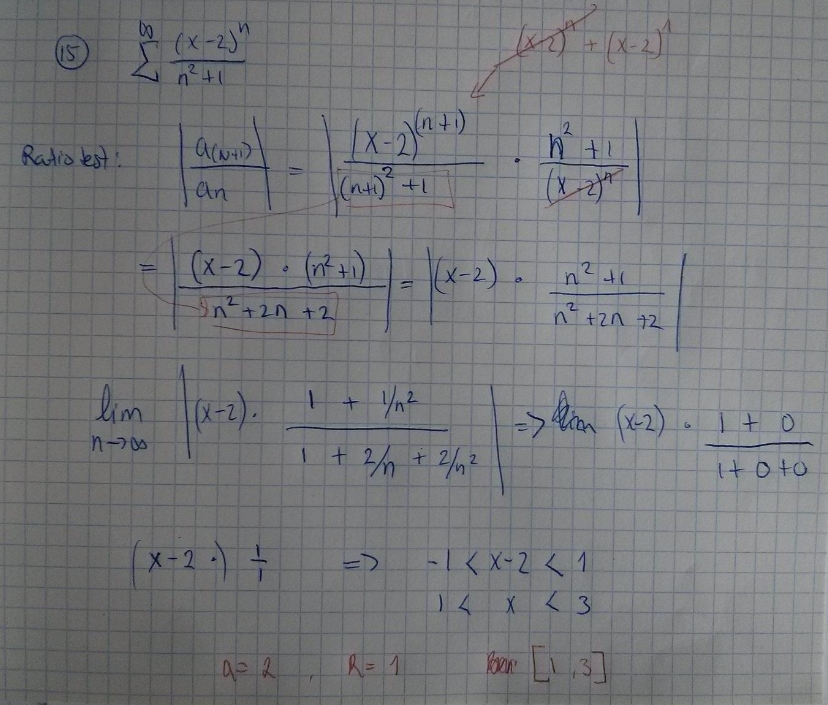 (15) ∞ Σ (x-2)^n / n²+1
(x-2)^n + (x-2)^1
Ratio test: | a(n+1) / an | = | (x-2)^(n+1) / (n+1)² + 1 · n² + 1 / (x-2)^n |
= | (x-2) · (n²+1) / n² + 2n + 2 | = | (x-2) · n² + 1 / n² + 2n + 2 |
lim n→∞ | (x-2) · 1 + 1/n² / 1 + 2/n + 2/n² | => lim (x-2) · 1 + 0 / 1 + 0 + 0
(x-2 ·) 1/1 => -1 < x-2 < 1
1 < x < 3
a = 2 , R = 1 [1, 3]